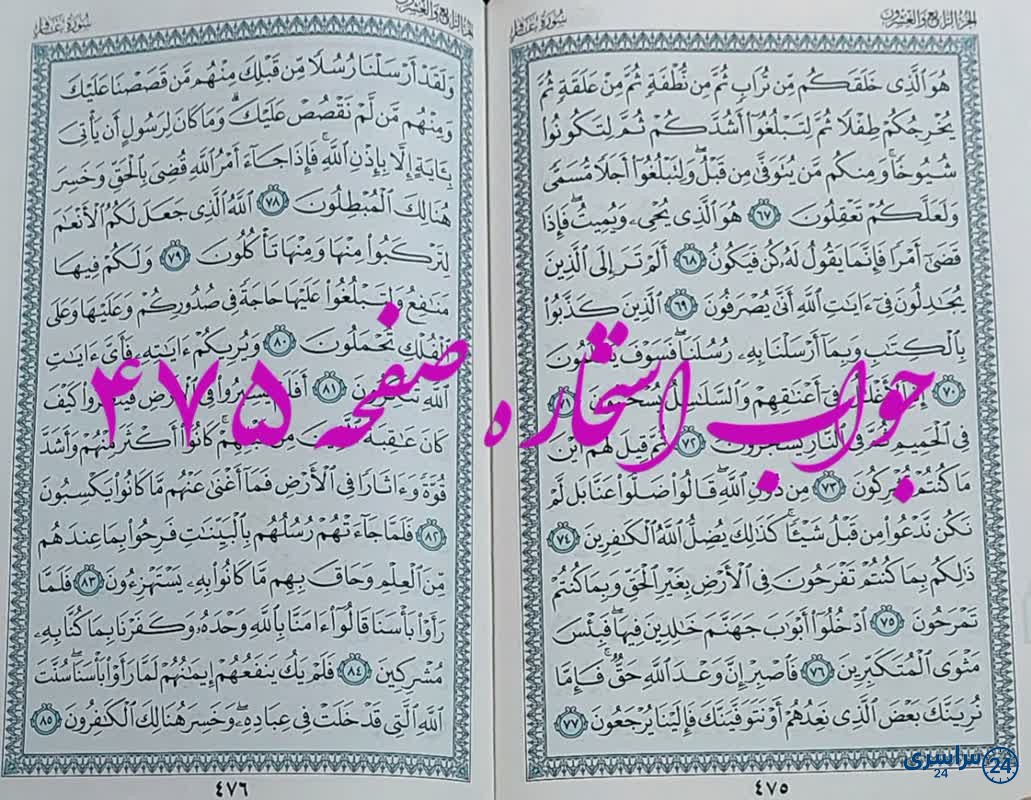 الجزء الرابع والعشرون سورة غافر
هُوَ الَّذِى خَلَقَكُم مِّن تُرَابٍ ثُمَّ مِن نُّطْفَةٍ ثُمَّ مِنْ عَلَقَةٍ ثُمَّ
يُخْرِجُكُمْ طِفْلًا ثُمَّ لِتَبْلُغُوٓا۟ أَشُدَّكُمْ ثُمَّ لِتَكُونُوا۟
شُيُوخًا وَمِنكُم مَّن يُتَوَفَّىٰ مِن قَبْلُ وَلِتَبْلُغُوٓا۟ أَجَلًا مُّسَمًّى
وَلَعَلَّكُمْ تَعْقِلُونَ ٦٧ هُوَ الَّذِى يُحْىِۦ وَيُمِيتُ فَإِذَا
قَضَىٰٓ أَمْرًا فَإِنَّمَا يَقُولُ لَهُۥ كُن فَيَكُونُ ٦٨ أَلَمْ تَرَ إِلَى الَّذِينَ
يُجَٰدِلُونَ فِىٓ ءَايَٰتِ اللَّهِ أَنَّىٰ يُصْرَفُونَ ٦٩ الَّذِينَ كَذَّبُوا۟
بِالْكِتَٰبِ وَبِمَآ أَرْسَلْنَا بِهِۦ رُسُلَنَا فَسَوْفَ يَعْلَمُونَ
٧٠ إِذِ الْأَغْلَٰلُ فِىٓ أَعْنَٰقِهِمْ وَالسَّلَٰسِلُ يُسْحَبُونَ ٧١
فِى الْحَمِيمِ ثُمَّ فِى النَّارِ يُسْجَرُونَ ٧٢ ثُمَّ قِيلَ لَهُمْ أَيْنَ
مَا كُنتُمْ تُشْرِكُونَ ٧٣ مِن دُونِ اللَّهِ قَالُوا۟ ضَلُّوا۟ عَنَّا بَل لَّمْ
نَكُن نَّدْعُوا۟ مِن قَبْلُ شَيْـًٔا كَذَٰلِكَ يُضِلُّ اللَّهُ الْكَٰفِرِينَ ٧٤
ذَٰلِكُم بِمَا كُنتُمْ تَفْرَحُونَ فِى الْأَرْضِ بِغَيْرِ الْحَقِّ وَبِمَا كُنتُمْ
تَمْرَحُونَ ٧٥ ادْخُلُوٓا۟ أَبْوَٰبَ جَهَنَّمَ خَٰلِدِينَ فِيهَا فَبِئْسَ
مَثْوَى الْمُتَكَبِّرِينَ ٧٦ فَاصْبِرْ إِنَّ وَعْدَ اللَّهِ حَقٌّ فَإِمَّا
نُرِيَنَّكَ بَعْضَ الَّذِى نَعِدُهُمْ أَوْ نَتَوَفَّيَنَّكَ فَإِلَيْنَا يُرْجَعُونَ ٧٧
٤٧٥
الجزء الرابع والعشرون سورة غافر
وَلَقَدْ أَرْسَلْنَا رُسُلًا مِّن قَبْلِكَ مِنْهُم مَّن قَصَصْنَا عَلَيْكَ
وَمِنْهُم مَّن لَّمْ نَقْصُصْ عَلَيْكَ وَمَا كَانَ لِرَسُولٍ أَن يَأْتِىَ
بِـَٔايَةٍ إِلَّا بِإِذْنِ اللَّهِ فَإِذَا جَآءَ أَمْرُ اللَّهِ قُضِىَ بِالْحَقِّ وَخَسِرَ
هُنَالِكَ الْمُبْطِلُونَ ٧٨ اللَّهُ الَّذِى جَعَلَ لَكُمُ الْأَنْعَٰمَ
لِتَرْكَبُوا۟ مِنْهَا وَمِنْهَا تَأْكُلُونَ ٧٩ وَلَكُمْ فِيهَا
مَنَٰفِعُ وَلِتَبْلُغُوا۟ عَلَيْهَا حَاجَةً فِى صُدُورِكُمْ وَعَلَيْهَا وَعَلَى
الْفُلْكِ تُحْمَلُونَ ٨٠ وَيُرِيكُمْ ءَايَٰتِهِۦ فَأَىَّ ءَايَٰتِ
اللَّهِ تُنكِرُونَ ٨١ أَفَلَمْ يَسِيرُوا۟ فِى الْأَرْضِ فَيَنظُرُوا۟ كَيْفَ
كَانَ عَٰقِبَةُ الَّذِينَ مِن قَبْلِهِمْ كَانُوٓا۟ أَكْثَرَ مِنْهُمْ وَأَشَدَّ
قُوَّةً وَءَاثَارًا فِى الْأَرْضِ فَمَآ أَغْنَىٰ عَنْهُم مَّا كَانُوا۟ يَكْسِبُونَ
٨٢ فَلَمَّا جَآءَتْهُمْ رُسُلُهُم بِالْبَيِّنَٰتِ فَرِحُوا۟ بِمَا عِندَهُم
مِّنَ الْعِلْمِ وَحَاقَ بِهِم مَّا كَانُوا۟ بِهِۦ يَسْتَهْزِءُونَ ٨٣ فَلَمَّا
رَأَوْا۟ بَأْسَنَا قَالُوٓا۟ ءَامَنَّا بِاللَّهِ وَحْدَهُۥ وَكَفَرْنَا بِمَا كُنَّا بِهِۦ
مُشْرِكِينَ ٨٤ فَلَمْ يَكُ يَنفَعُهُمْ إِيمَٰنُهُمْ لَمَّا رَأَوْا۟ بَأْسَنَا سُنَّتَ
اللَّهِ الَّتِى قَدْ خَلَتْ فِى عِبَادِهِۦ وَخَسِرَ هُنَالِكَ الْكَٰفِرُونَ ٨٥
٤٧٦
جواب استخاره صفحه ۴۷۵
سراسری 24
24